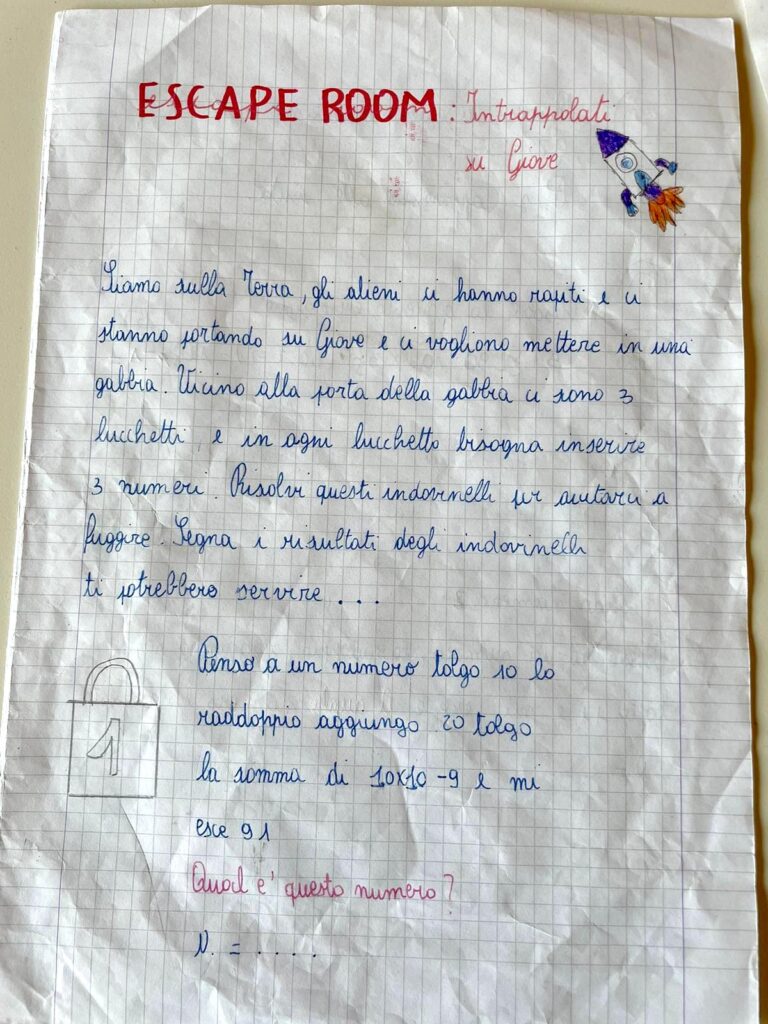 ESCAPE ROOM : Intrappolati
su Giove
Siamo sulla Terra, gli alieni ci hanno rapiti e ci
stanno portando su Giove e ci vogliono mettere in una
gabbia. Vicino alla porta della gabbia ci sono 3
lucchetti, e in ogni lucchetto bisogna inserire
3 numeri. Risolvi questi indovinelli per aiutarci a
fuggire. Segna i risultati degli indovinelli
ti potrebbero servire ...
1
Penso a un numero tolgo 10 lo
raddoppio aggiungo 20 tolgo
la somma di 10x10 -9 e mi
esce 91
Qual e' questo numero?
N. = ....